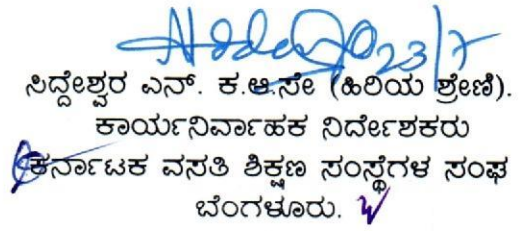 23/7
ಸಿದ್ದೇಶ್ವರ ಎನ್. ಕ.ಆ.ಸೇ (ಹಿರಿಯ ಶ್ರೇಣಿ).
ಕಾರ್ಯನಿರ್ವಾಹಕ ನಿರ್ದೇಶಕರು
ಕರ್ನಾಟಕ ವಸತಿ ಶಿಕ್ಷಣ ಸಂಸ್ಥೆಗಳ ಸಂಘ
ಬೆಂಗಳೂರು.